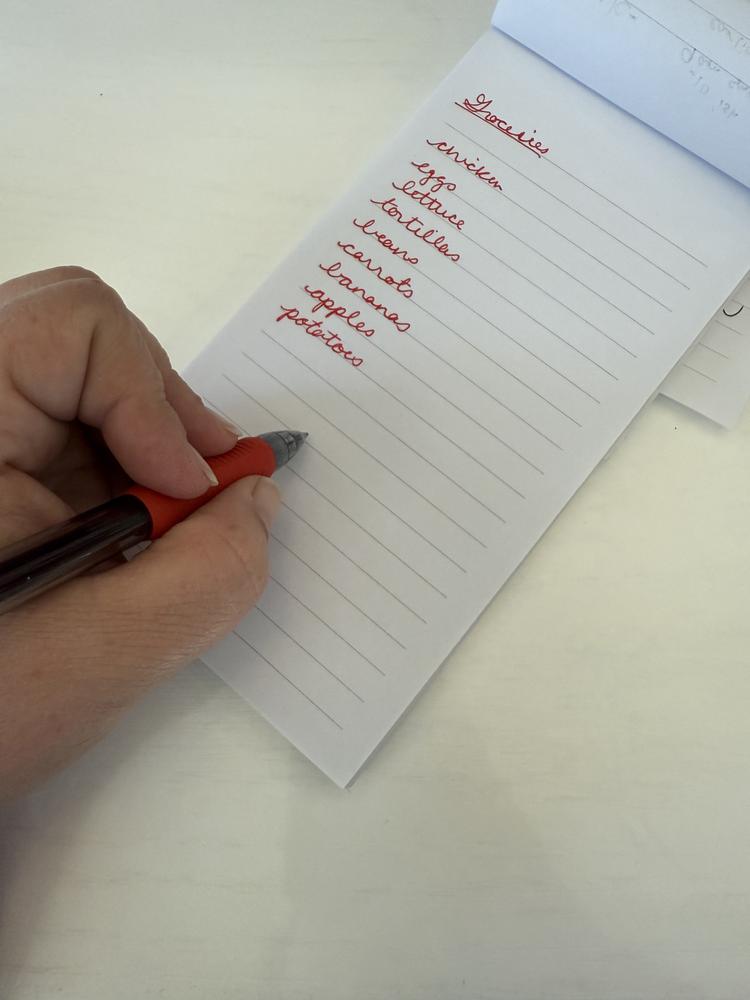 Groceries
chicken
eggs
lettuce
tortillas
beans
carrots
bananas
apples
potatoes